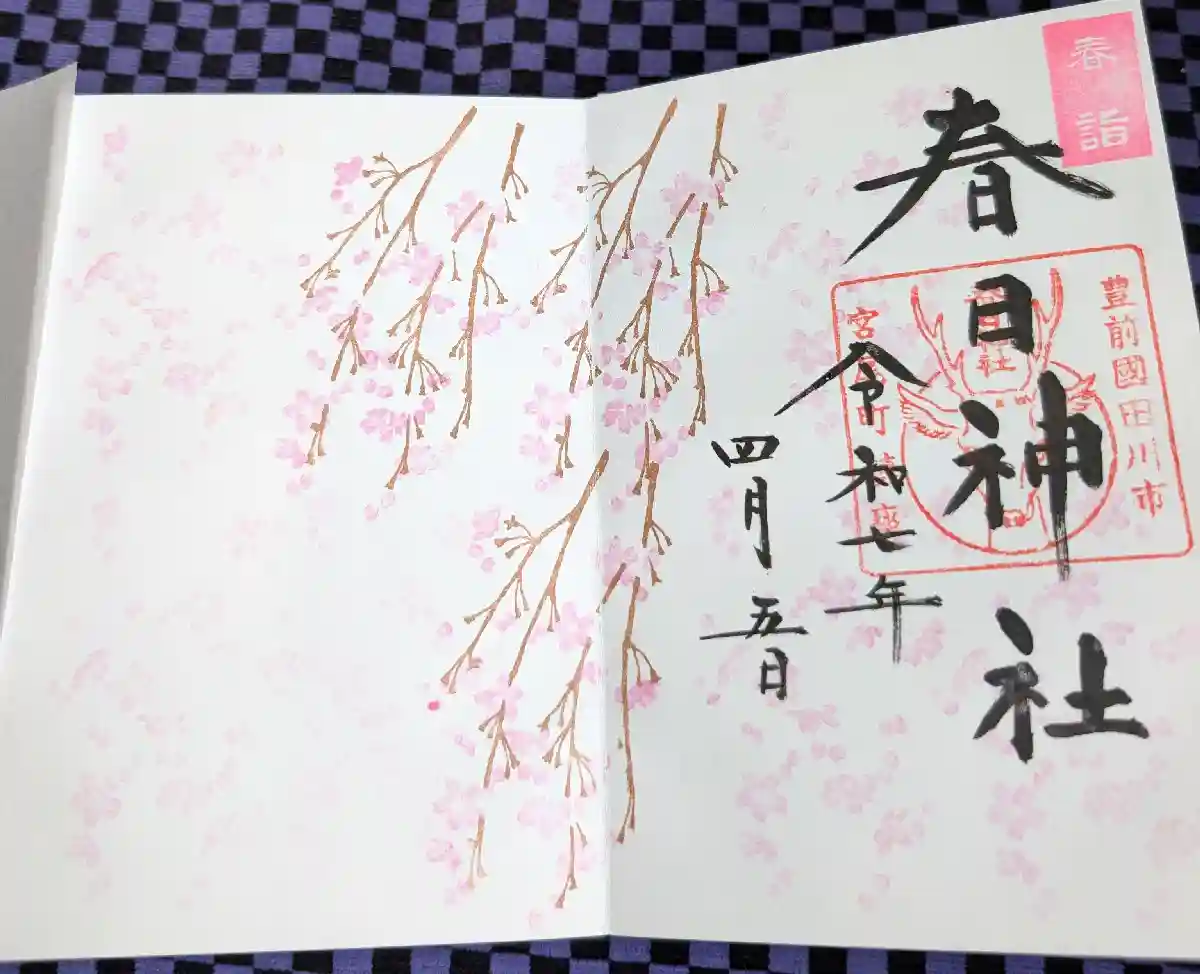 春詣
春日神社
豊前國田川市
令和七年
四月五日